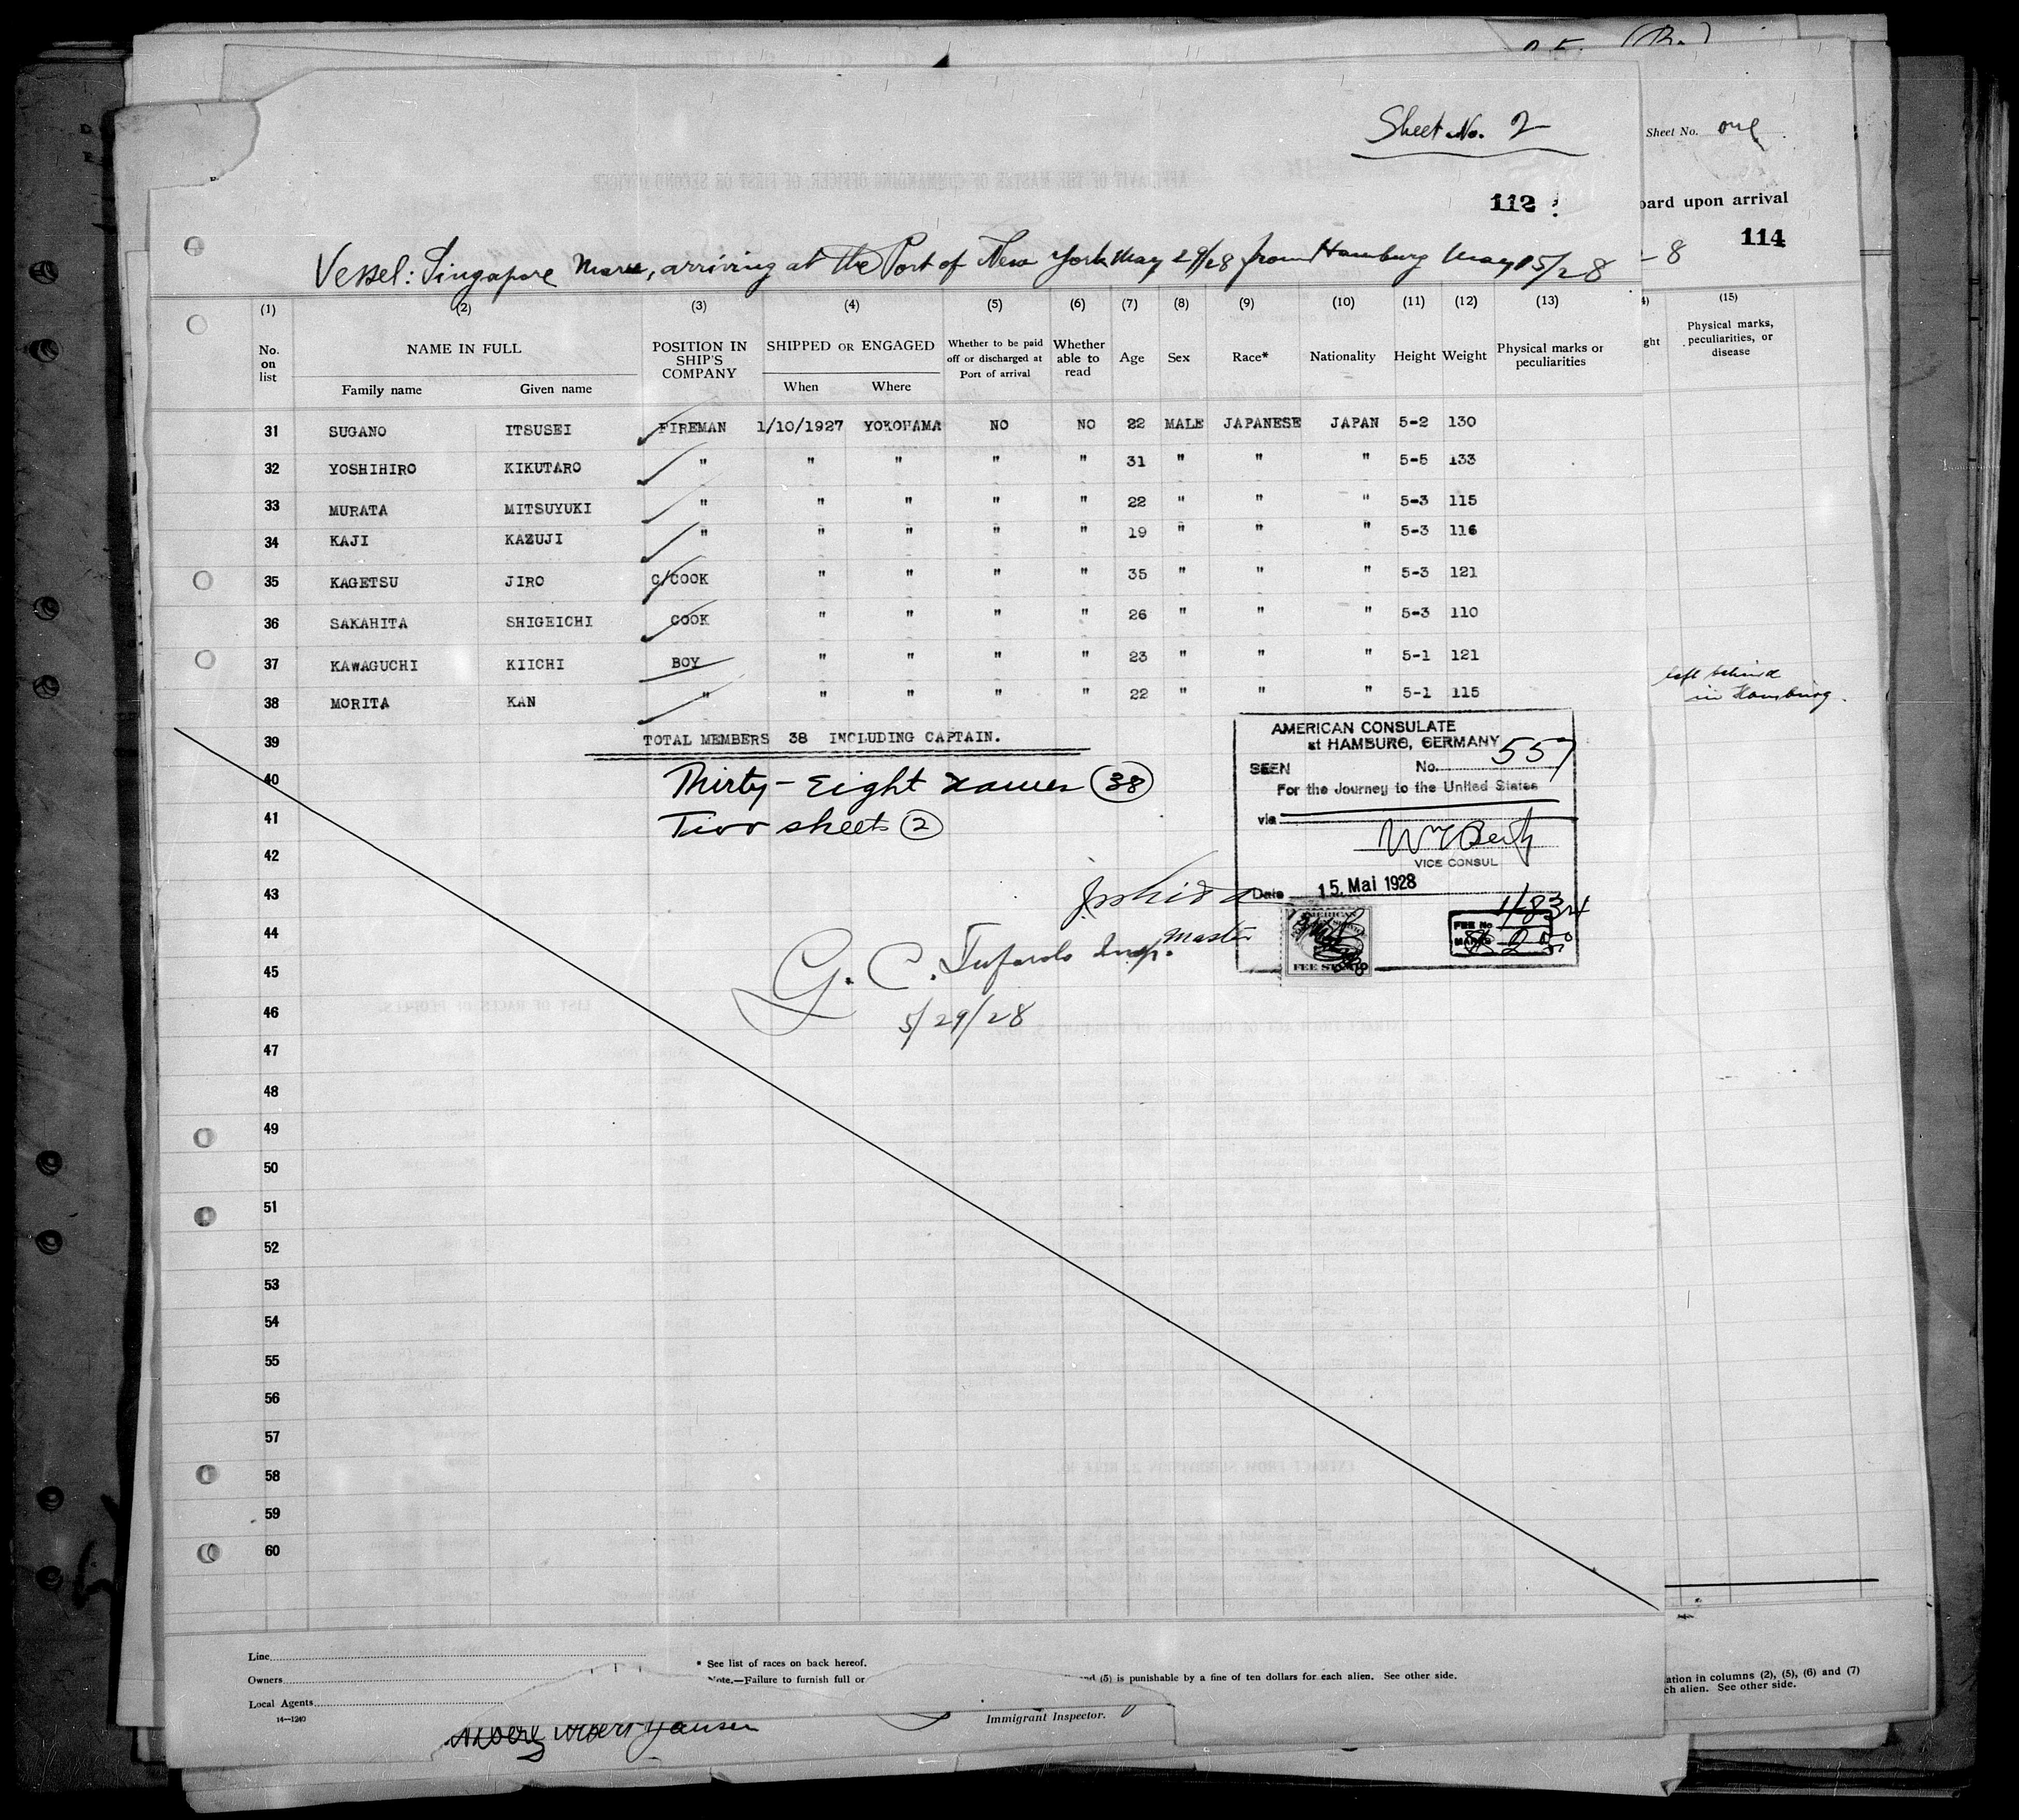 Sheet No. 2
Sheet No. one
112
oard upon arrival
114
Vessel: Singapore Maru, arriving at the Port of New York May 29/28 from Hamburg May 15/28
- 8
(1) (2) (3) (4) (5) (6) (7) (8) (9) (10) (11) (12) (13)
4) (15)
No. on list
NAME IN FULL
Family name Given name
POSITION IN SHIP'S COMPANY
SHIPPED OR ENGAGED
When Where
Whether to be paid off or discharged at Port of arrival
Whether able to read
Age Sex Race* Nationality Height Weight
Physical marks or peculiarities
ght
Physical marks, peculiarities, or disease
31 SUGANO ITSUSEI FIREMAN 1/10/1927 YOKOHAMA NO NO 22 MALE JAPANESE JAPAN 5-2 130
32 YOSHIHIRO KIKUTARO " " " " " 31 " " " 5-5 133
33 MURATA MITSUYUKI " " " " " 22 " " " 5-3 115
34 KAJI KAZUJI " " " " " 19 " " " 5-3 116
35 KAGETSU JIRO C/COOK " " " " 35 " " " 5-3 121
36 SAKAHITA SHIGEICHI COOK " " " " 26 " " " 5-3 110
37 KAWAGUCHI KIICHI BOY " " " " 23 " " " 5-1 121
38 MORITA KAN " " " " " 22 " " " 5-1 115
left behind
in Hamburg.
39 TOTAL MEMBERS 38 INCLUDING CAPTAIN.
40 Thirty-Eight names 38
41 Two sheets 2
42
43
44
45
46
47
48
49
50
51
52
53
54
55
56
57
58
59
60
AMERICAN CONSULATE
at HAMBURG, GERMANY
SEEN No. 557
For the Journey to the United States
via
VICE CONSUL
Date 15. Mai 1928
AMERICAN
FEE STAMP
FEE No
MARKS
Master
G. C. Insp.
5/29/28
Line
Owners
Local Agents
14-1240
* See list of races on back hereof.
Note.—Failure to furnish full or
nd (5) is punishable by a fine of ten dollars for each alien. See other side.
Immigrant Inspector.
ation in columns (2), (5), (6) and (7)
ch alien. See other side.